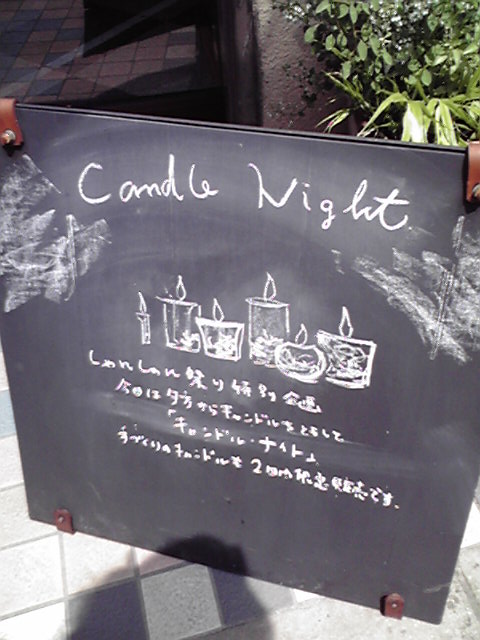 Candle Night
しゃんしゃん祭り特別企画
今日は夕方からキャンドルをともして
「キャンドル・ナイト」
手づくりのキャンドルを2日間限定販売です。